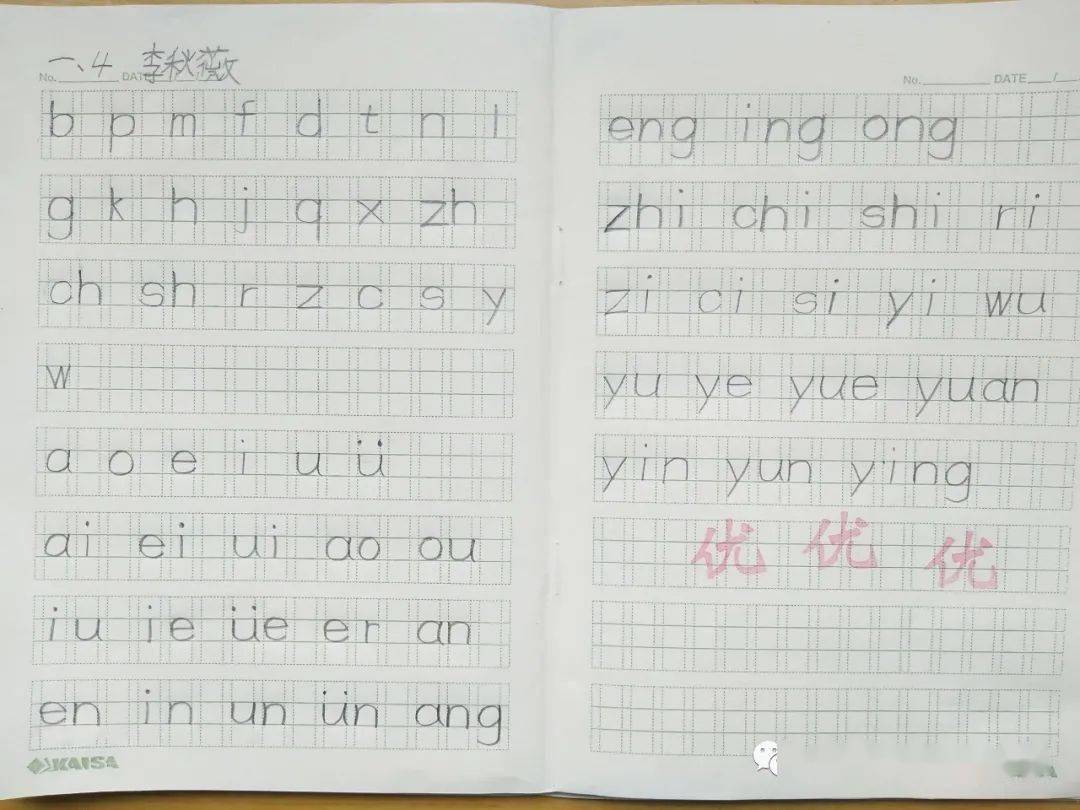 一、4 李秋薇
No. DATE
b p m f d t n l
g k h j q x zh
ch sh r z c s y
w
a o e i u ü
ai ei ui ao ou
iu ie üe er an
en in un ün ang
KAISA
No. DATE /
eng ing ong
zhi chi shi ri
zi ci si yi wu
yu ye yue yuan
yin yun ying
优 优 优